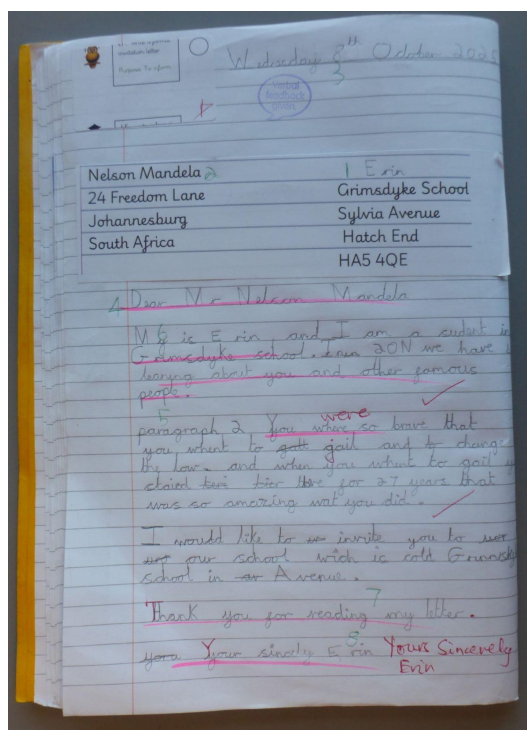 invitation letter
Purpose: To inform
Wednesday 8th October 2025
3
Verbal
feedback
given
Nelson Mandela 2
24 Freedom Lane
Johannesburg
South Africa
1 Erin
Grimsdyke School
Sylvia Avenue
Hatch End
HA5 4QE
4 Dear Mr Nelson Mandela
6
M is Erin and I am a sudent in
Grimsdyke school. 2ON we have
learing about you and other famous
people.
5
were
paragraph 2 You where so brave that
you whent to gail and to change
the low. and when you whent to gail
staied for 27 years that
was so amazing wat you did.
I would like to invite you to
our school wich is cold
school in Avenue.
7
Thank you for reading my letter.
8
Your sincely Erin Yours Sincerely
Erin